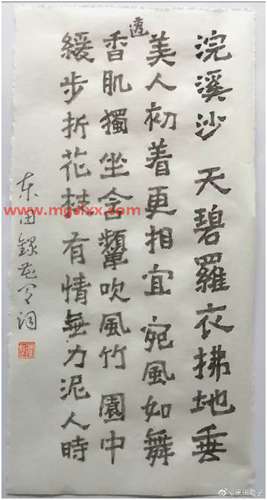 浣溪沙 天碧羅衣拂地垂
美人初着更相宜 宛風如舞
透
香肌獨坐含顰吹風竹 園中
緩步折花枝 有情無力泥人時
东田錄花间词
www.mgsfxx.com